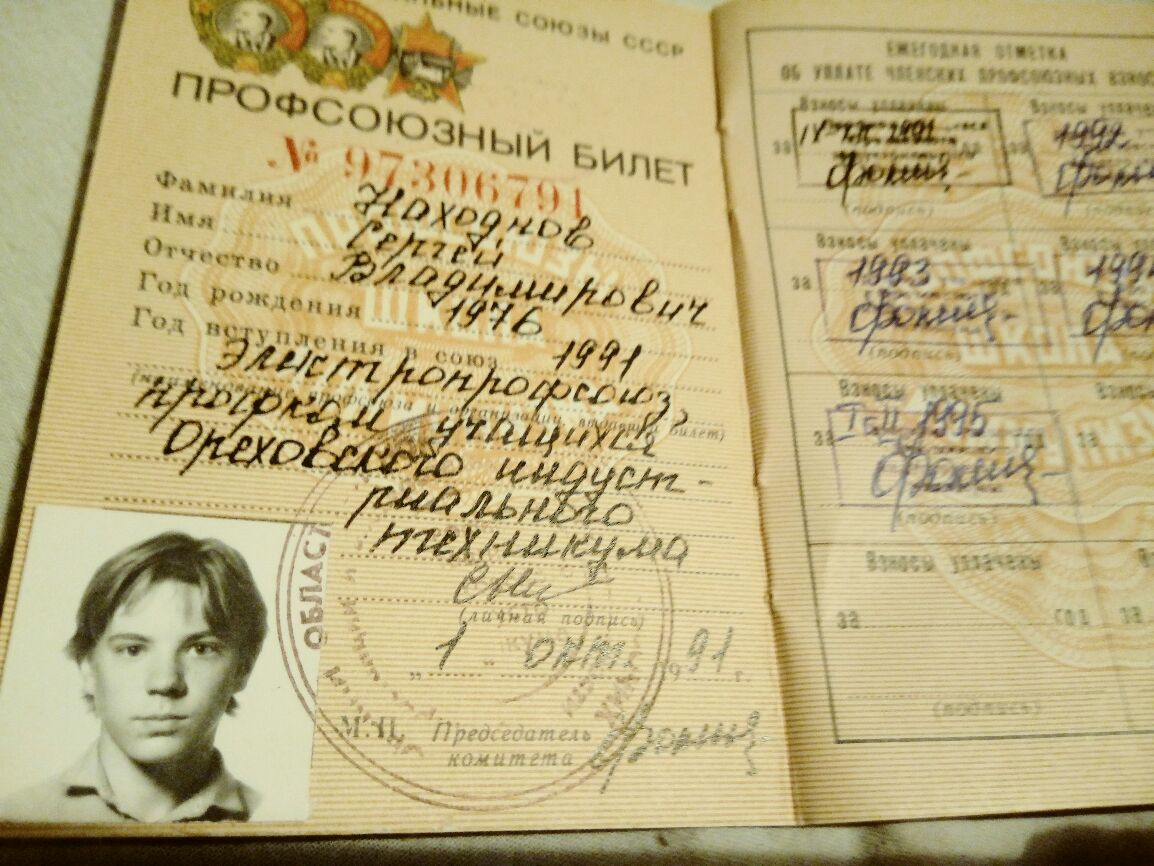 СОЮЗЫ СССР
ПРОФСОЮЗНЫЙ БИЛЕТ
№ 97306791
Фамилия Находнов
Имя Сергей
Отчество Владимирович
Год рождения 1976
Год вступления в союз 1991
Электропрофсоюз
(наименование профсоюза и организации, выдавшей билет)
профком учащихся
Ореховского индуст-
риального
техникума
(личная подпись)
„1" окт. 1991 г.
М.П. Председатель
комитета
ОБЛАСТ
ЕЖЕГОДНАЯ ОТМЕТКА
ОБ УПЛАТЕ ЧЛЕНСКИХ ПРОФСОЮЗНЫХ
Взносы уплачены
за 1991
1992
(подпись)
Взносы уплачены
за 1993
(подпись)
Взносы уплачены
за I-II 1995 год
(подпись)
Взносы уплачены
за год за
(подпись)